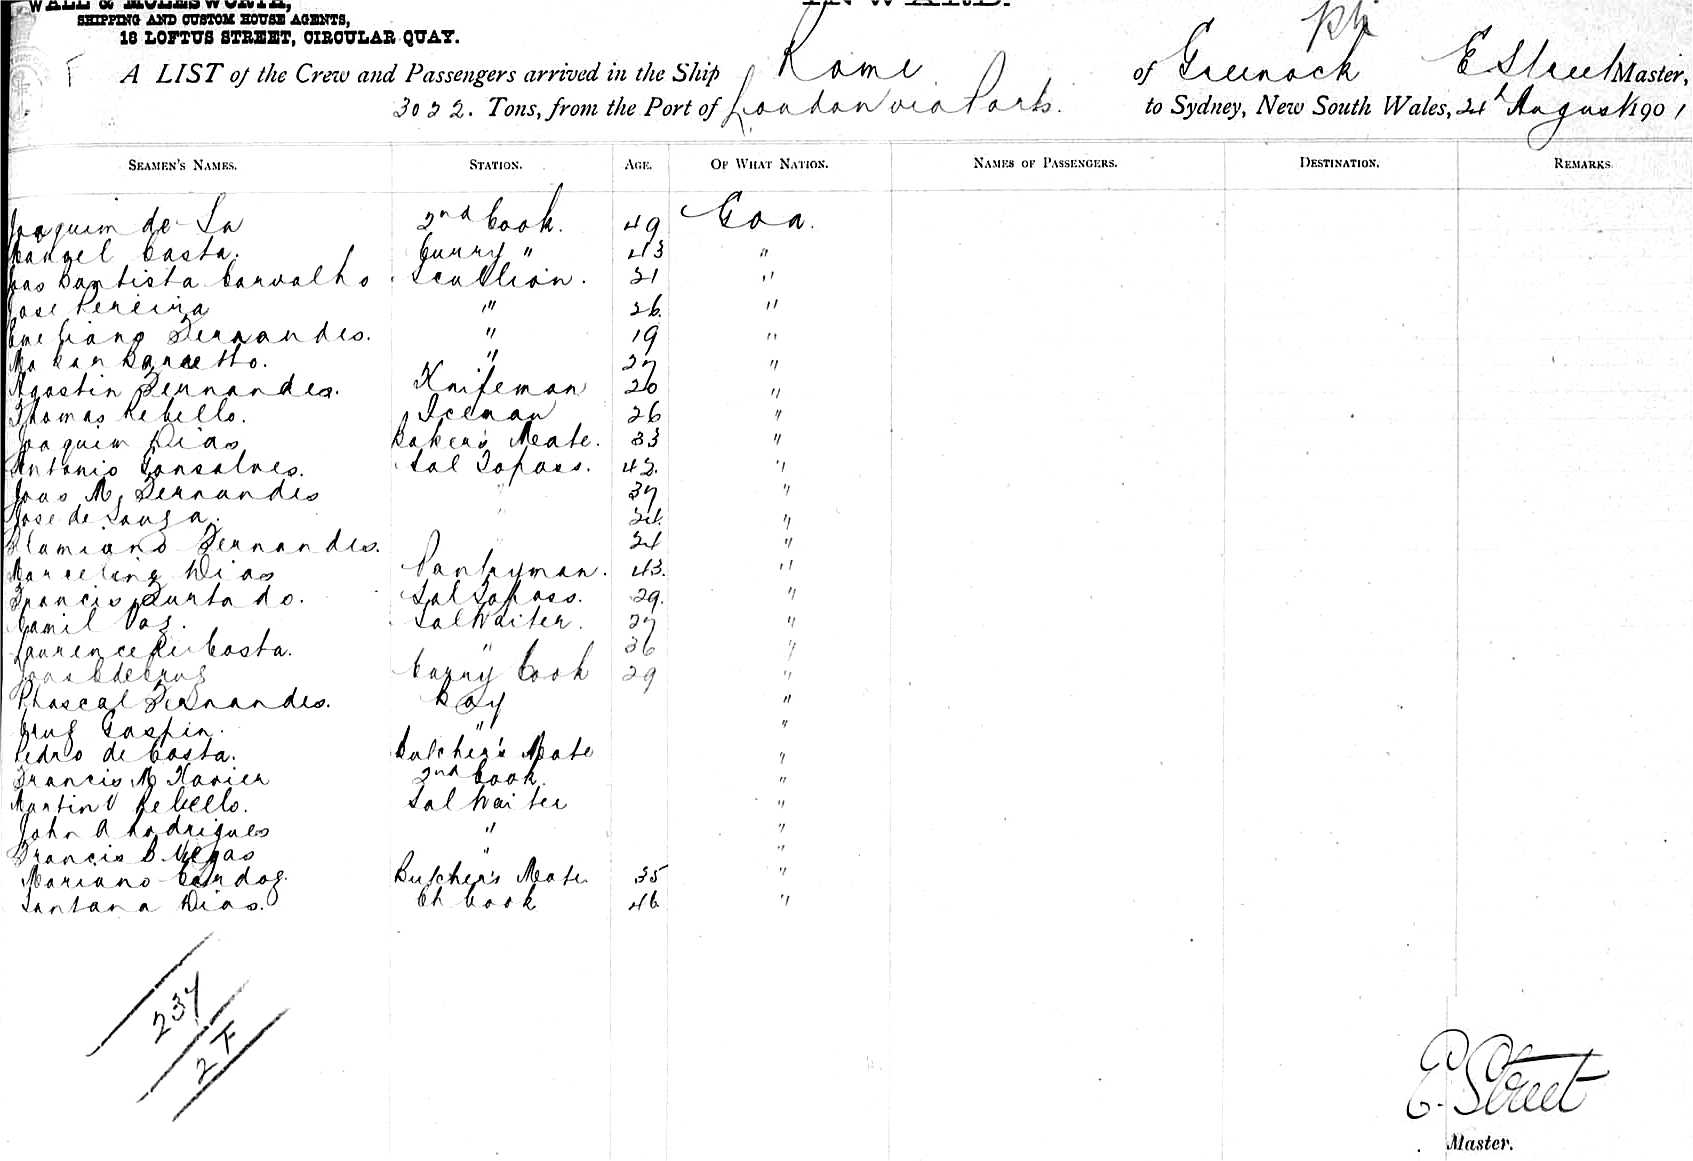 WALL & MOLESWORTH,
SHIPPING AND CUSTOM HOUSE AGENTS,
18 LOFTUS STREET, CIRCULAR QUAY.
INWARD.
A LIST of the Crew and Passengers arrived in the Ship Rome of Greenock E Street Master,
3022. Tons, from the Port of London via Ports. to Sydney, New South Wales, 21st August 1901
SEAMEN'S NAMES. STATION. AGE. OF WHAT NATION. NAMES OF PASSENGERS. DESTINATION. REMARKS
Joaquim de Sa 2nd Cook. 49 Goa.
Manuel Costa. Curry " 43 "
Joas Bautista Carvalho Scullion. 21 "
Jose Pereira " 26. "
Fernandes. " 19 "
Barretto. " 27 "
Agostin Fernandes. Knifeman 20 "
Thomas Rebello. Iceman 26 "
Joaquim Dias Baker's Mate. 33 "
Antonio Gonsalves. Sal Topass. 42. "
Joas M. Fernandes " 37 "
Jose de Souza. " "
Damiano Fernandes. "
Marceling Dias Pantryman. 43. "
Francis Furtado. Sal Topass. 29. "
Camil Vaz. Sal Waiter. 27 "
Laurence De Costa. " 36 "
Joas C de Cruz Curry Cook 29 "
Phascal Fernandes. Boy "
Cruz Gaspin. " "
Pedro de Costa. Butcher's Mate "
Francis M Xavier 2nd Cook. "
Martin V Rebello. Sal Waiter "
John A Rodrigues " "
Francis B Viegas " "
Mariano Cardoz. Butcher's Mate 35 "
Santana Dias. Ch Cook 46 "
237
27
E. Street
Master.